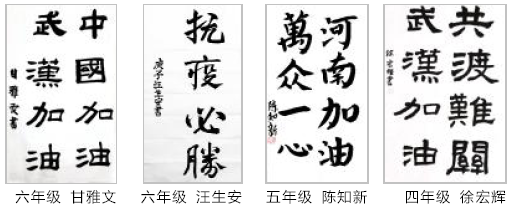 中國加油
武漢加油
甘雅文書
六年级 甘雅文
抗疫必勝
庚子汪生安書
六年级 汪生安
河南加油
萬众一心
陈知新
五年级 陈知新
共渡難關
武漢加油
四年级 徐宏辉